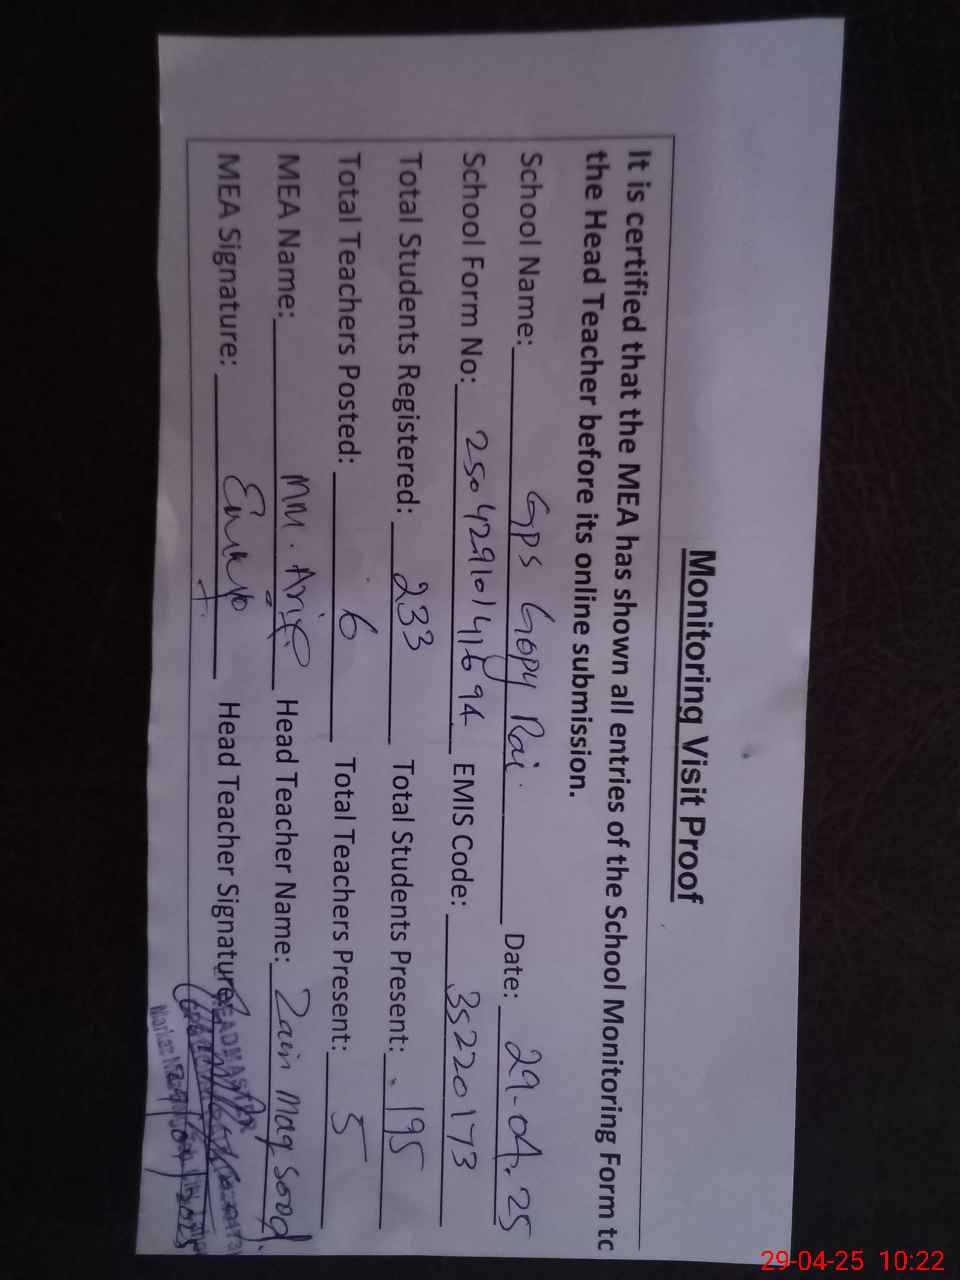 Monitoring Visit Proof
It is certified that the MEA has shown all entries of the School Monitoring Form to
the Head Teacher before its online submission.
School Name: GPS Gopy Rai Date: 29-04.25
School Form No: 25042910141694 EMIS Code: 35220173
Total Students Registered: 233 Total Students Present: 195
Total Teachers Posted: 6 Total Teachers Present: 5
MEA Name: MM. Arif Head Teacher Name: Zain Maqsood
MEA Signature: Head Teacher Signature:
HEADMASTER
29/04/2025
29-04-25 10:22